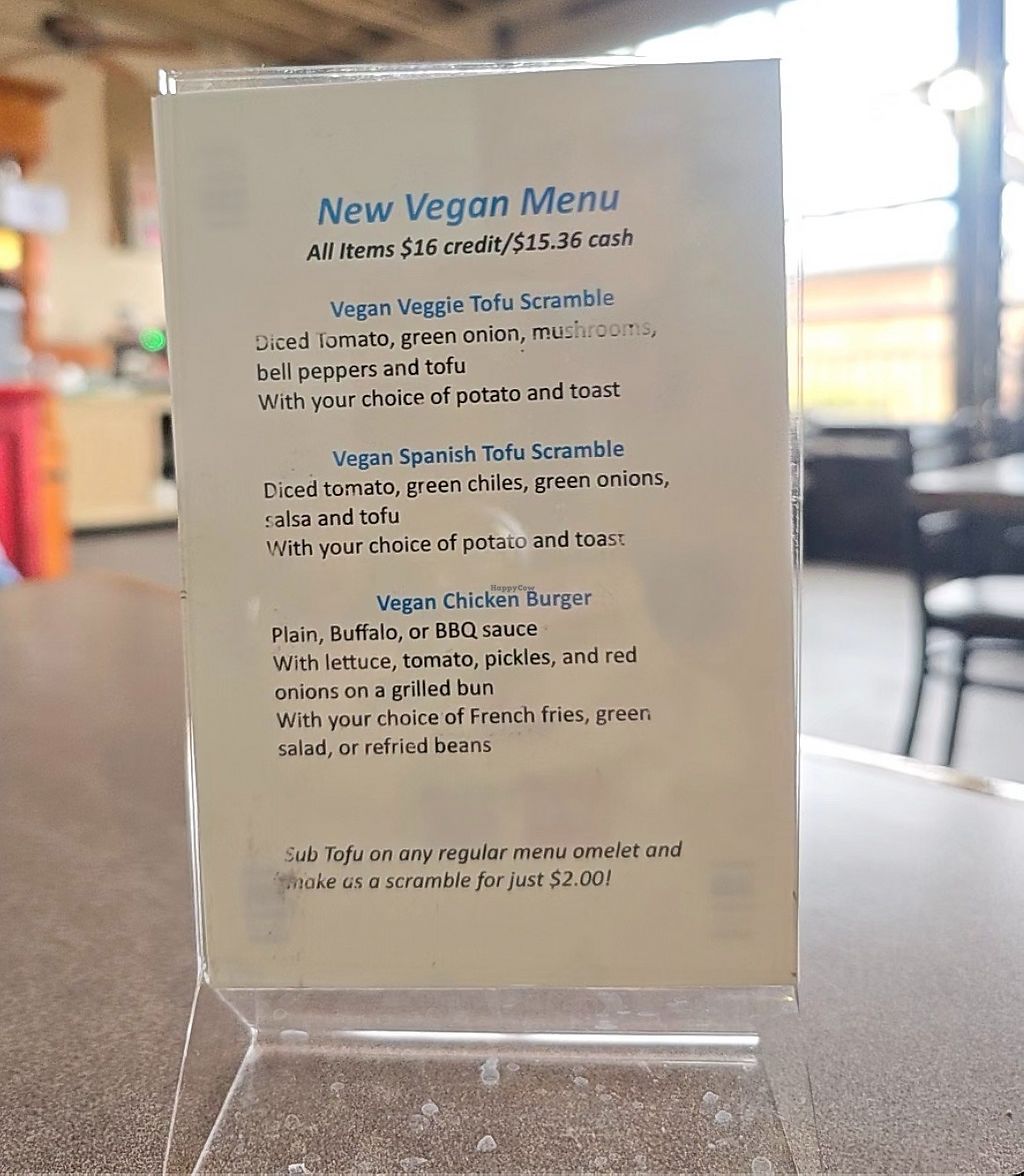 New Vegan Menu
All Items $16 credit/$15.36 cash
Vegan Veggie Tofu Scramble
Diced Tomato, green onion, mushrooms,
bell peppers and tofu
With your choice of potato and toast
Vegan Spanish Tofu Scramble
Diced tomato, green chiles, green onions,
salsa and tofu
With your choice of potato and toast
HappyCow
Vegan Chicken Burger
Plain, Buffalo, or BBQ sauce
With lettuce, tomato, pickles, and red
onions on a grilled bun
With your choice of French fries, green
salad, or refried beans
Sub Tofu on any regular menu omelet and
make as a scramble for just $2.00!